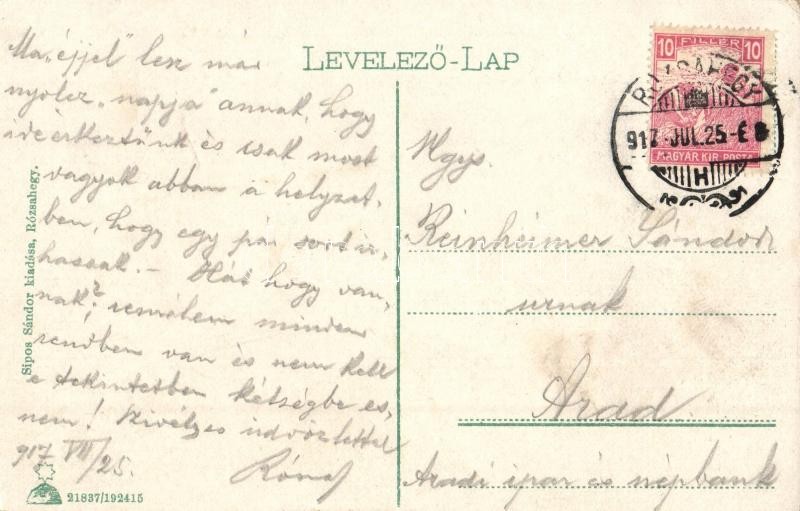 LEVELEZŐ-LAP
Ma „éjjel" lesz már
nyolcz „napja" annak, hogy
ide érkeztünk és csak most
vagyok abban a helyzet-
ben, hogy egy pár sort ir-
hassak. — Hát hogy van-
nak? remélem minden
rendben van és nem kell
e tekintetben kétségbe es-
nem! Szivélyes üdvözlettel
917 VII/25.
Sipos Sándor kiadása, Rózsahegy.
21837/192415
10 FILLÉR 10
MAGYAR KIR. POSTA
RÓZSAHEGY
917 JUL. 25 - É 8
H
Ngys.
Reinheimer Sándor
urnak
Arad.
Aradi ipar és népbank